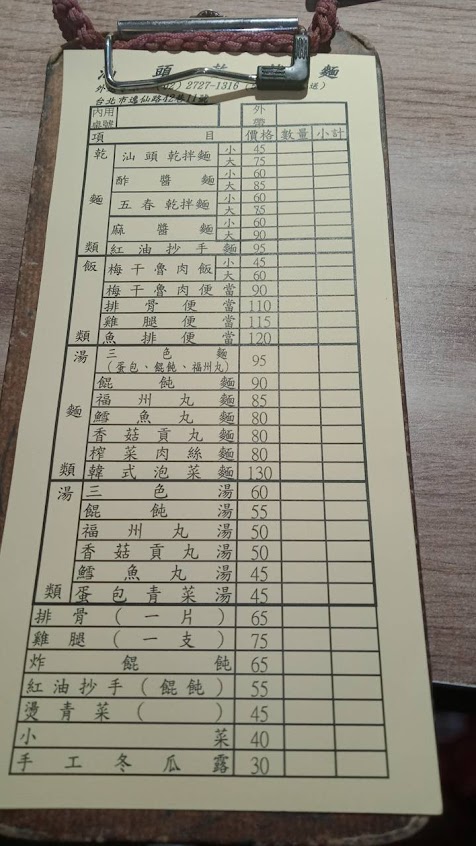 汕頭 麵
外 02) 2727-1316 送)
台北市逸仙路42巷11號
內用 外
桌號 帶
項目 價格 數量 小計
乾麵類
汕頭乾拌麵 小 45
大 75
酢醬麵 小 60
大 85
五春乾拌麵 小 60
大 75
麻醬麵 小 60
大 90
紅油抄手麵 95
飯類
梅干魯肉飯 小 45
大 60
梅干魯肉便當 90
排骨便當 110
雞腿便當 115
魚排便當 120
湯麵類
三色麵
(蛋包、餛飩、福州丸) 95
餛飩麵 90
福州丸麵 85
鱈魚丸麵 80
香菇貢丸麵 80
榨菜肉絲麵 80
韓式泡菜麵 130
湯類
三色湯 60
餛飩湯 55
福州丸湯 50
香菇貢丸湯 50
鱈魚丸湯 45
蛋包青菜湯 45
排骨(一片) 65
雞腿(一支) 75
炸餛飩 65
紅油抄手(餛飩) 55
燙青菜( ) 45
小菜 40
手工冬瓜露 30